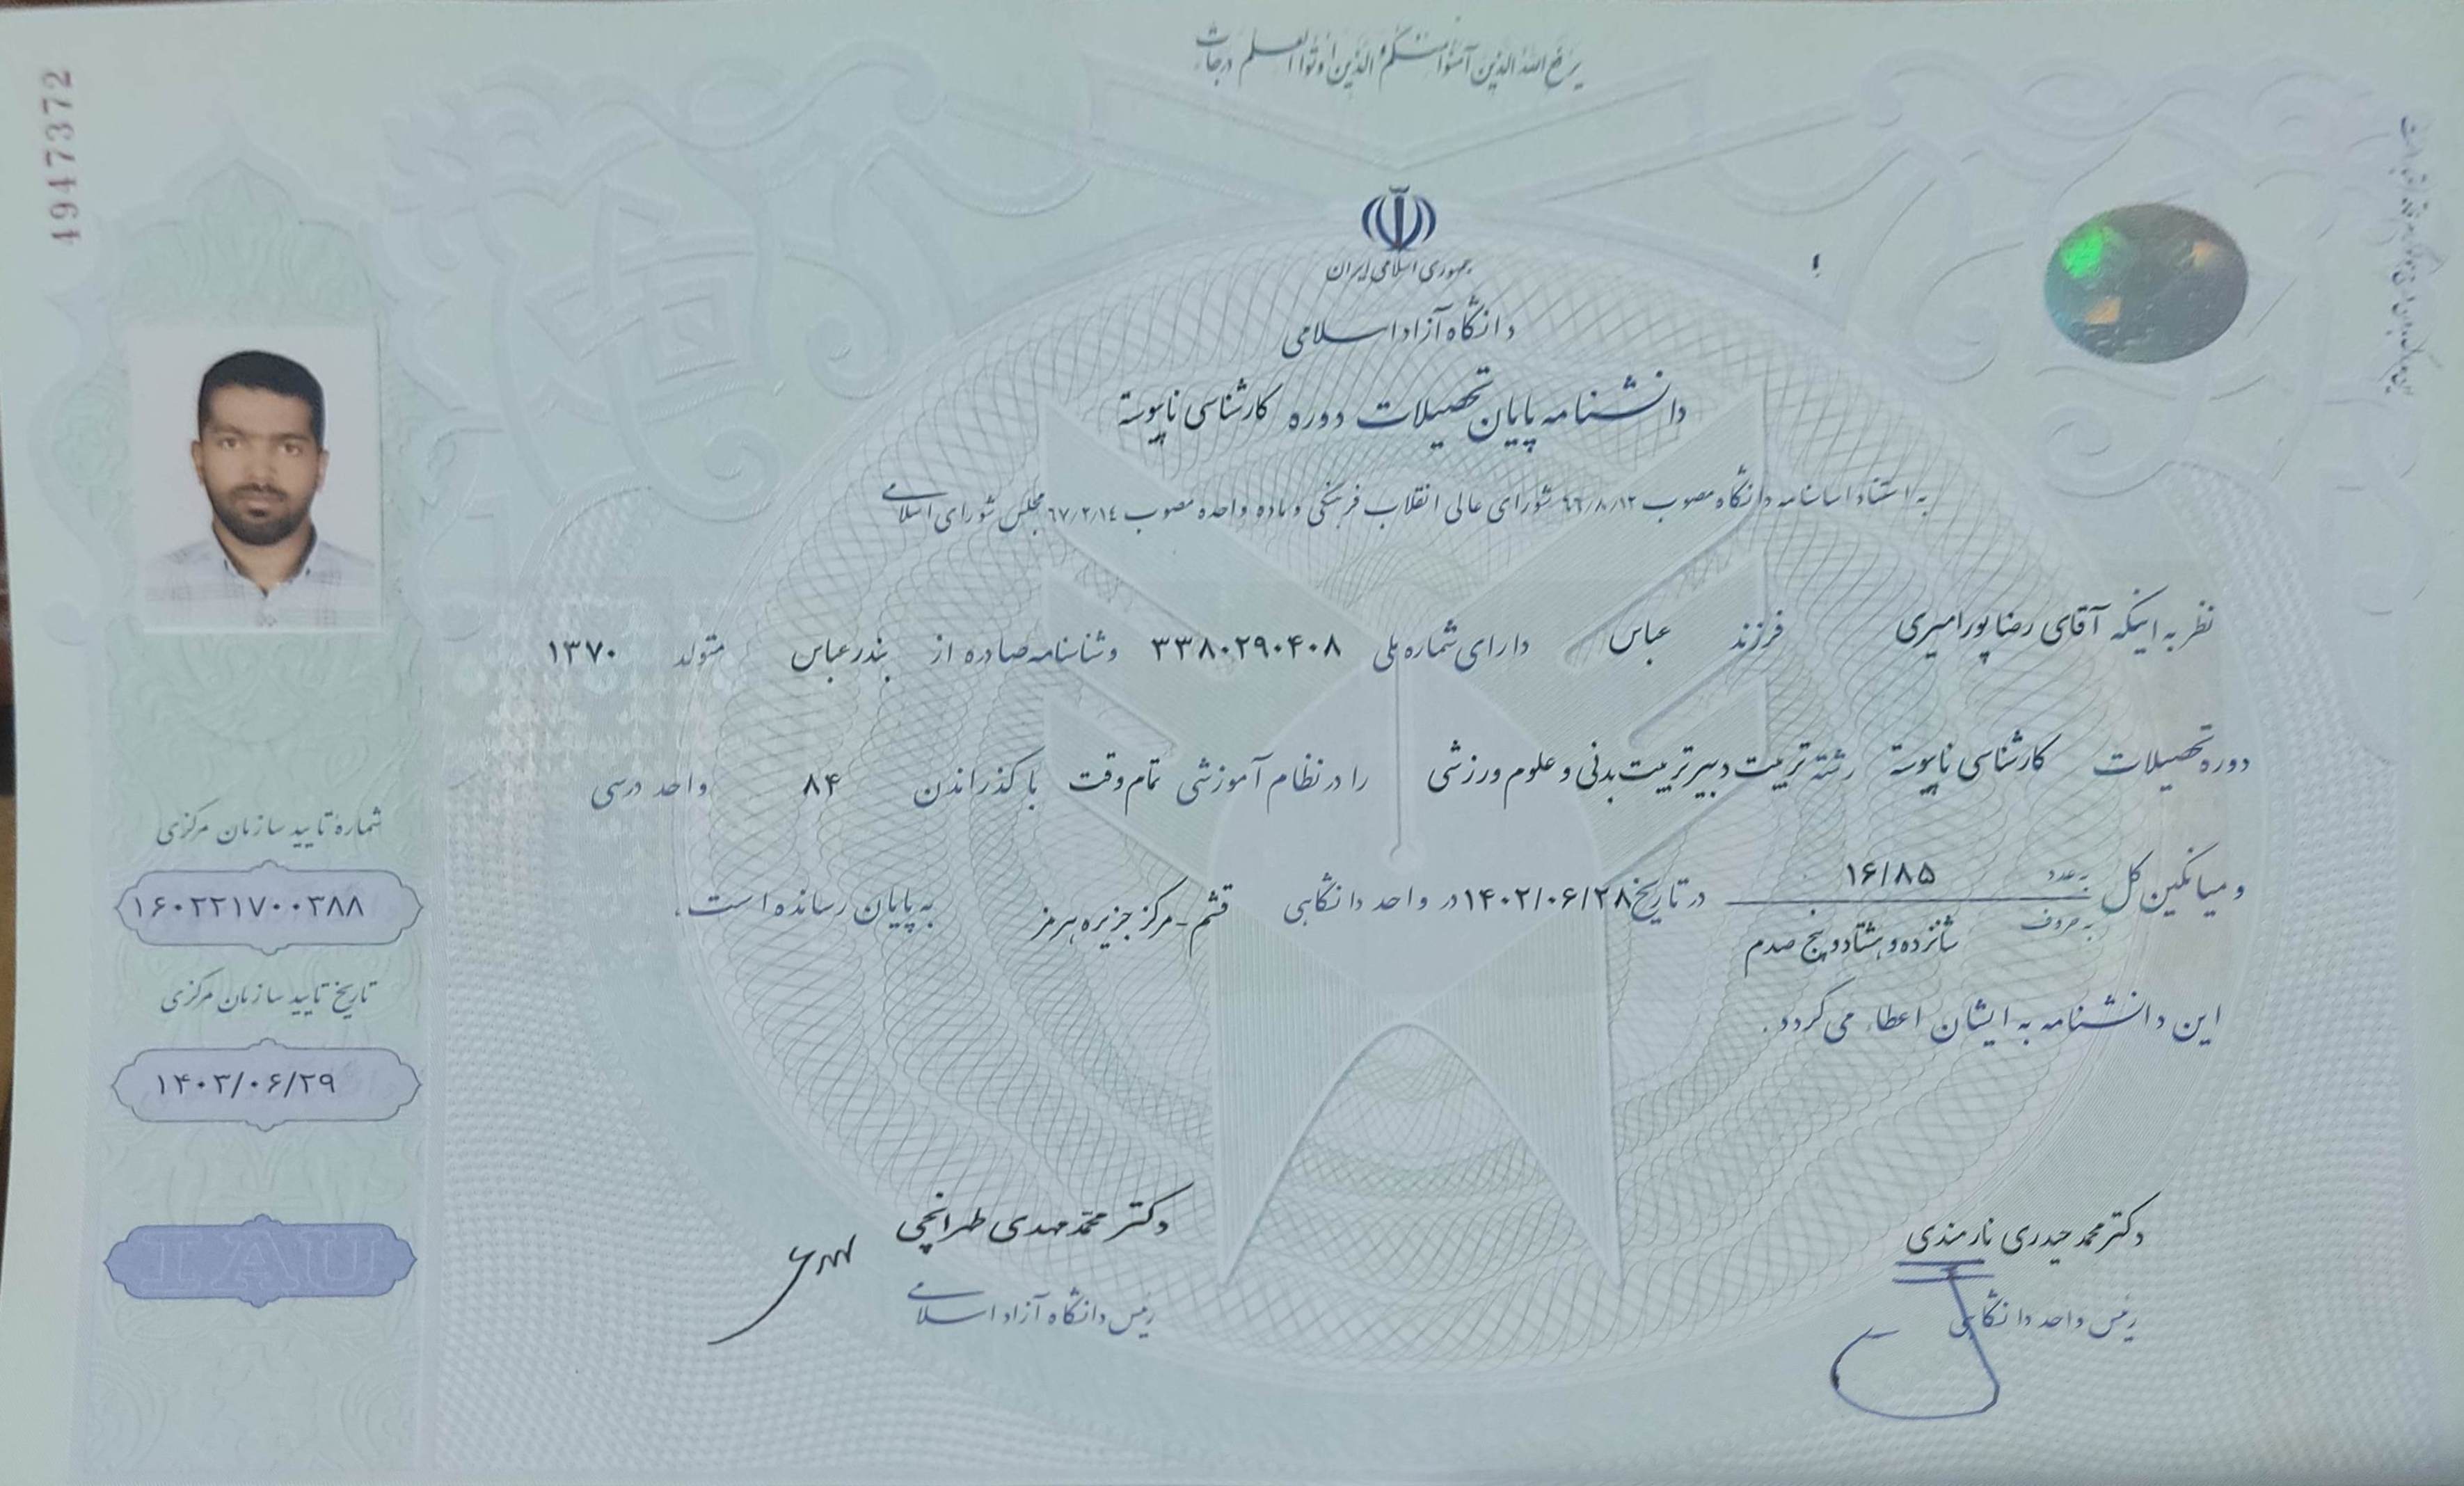 یرفع الله الذین آمنوا منکم و الذین اوتوا العلم درجات
جمهوری اسلامی ایران
دانشگاه آزاد اسلامی
دانشنامه پایان تحصیلات دوره کارشناسی ناپیوسته
به استناد اساسنامه دانشگاه مصوب ٦٦/٨/١٢ شورای عالی انقلاب فرهنگی و ماده واحده مصوب ٦٧/٢/١٤ مجلس شورای اسلامی
نظر به اینکه آقای رضا پورامیری فرزند عباس دارای شماره ملی ۳۳۸۰۲۹۰۴۰۸ و شناسنامه صادره از بندرعباس متولد ۱۳۷۰
دوره تحصیلات کارشناسی ناپیوسته رشته تربیت دبیر تربیت بدنی و علوم ورزشی را در نظام آموزشی تمام وقت با گذراندن ۸۴ واحد درسی
و میانگین کل به عدد ۱۶/۸۵ به حروف شانزده و هشتاد و پنج صدم در تاریخ ۱۴۰۲/۰۶/۲۸ در واحد دانشگاهی قشم - مرکز جزیره هرمز به پایان رسانده است.
این دانشنامه به ایشان اعطاء می گردد.
دکتر محمد حیدری نارمندی
رئیس واحد دانشگاهی
دکتر محمد مهدی طهرانچی
رئیس دانشگاه آزاد اسلامی
4947372
شماره تایید سازمان مرکزی
۱۶۰۲۲۱۷۰۰۲۸۸
تاریخ تایید سازمان مرکزی
۱۴۰۳/۰۶/۲۹
IAU